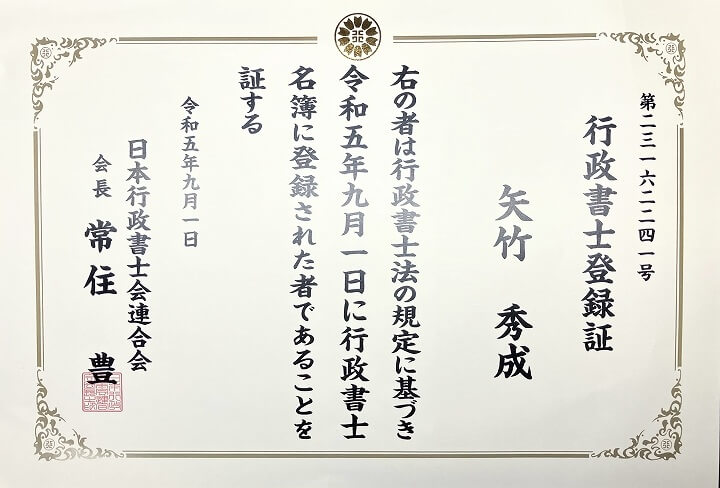 第二三一六二二四一号
行政書士登録証
矢竹 秀成
右の者は行政書士法の規定に基づき
令和五年九月一日に行政書士
名簿に登録された者であることを
証する
令和五年九月一日
日本行政書士会連合会
会長 常住 豊